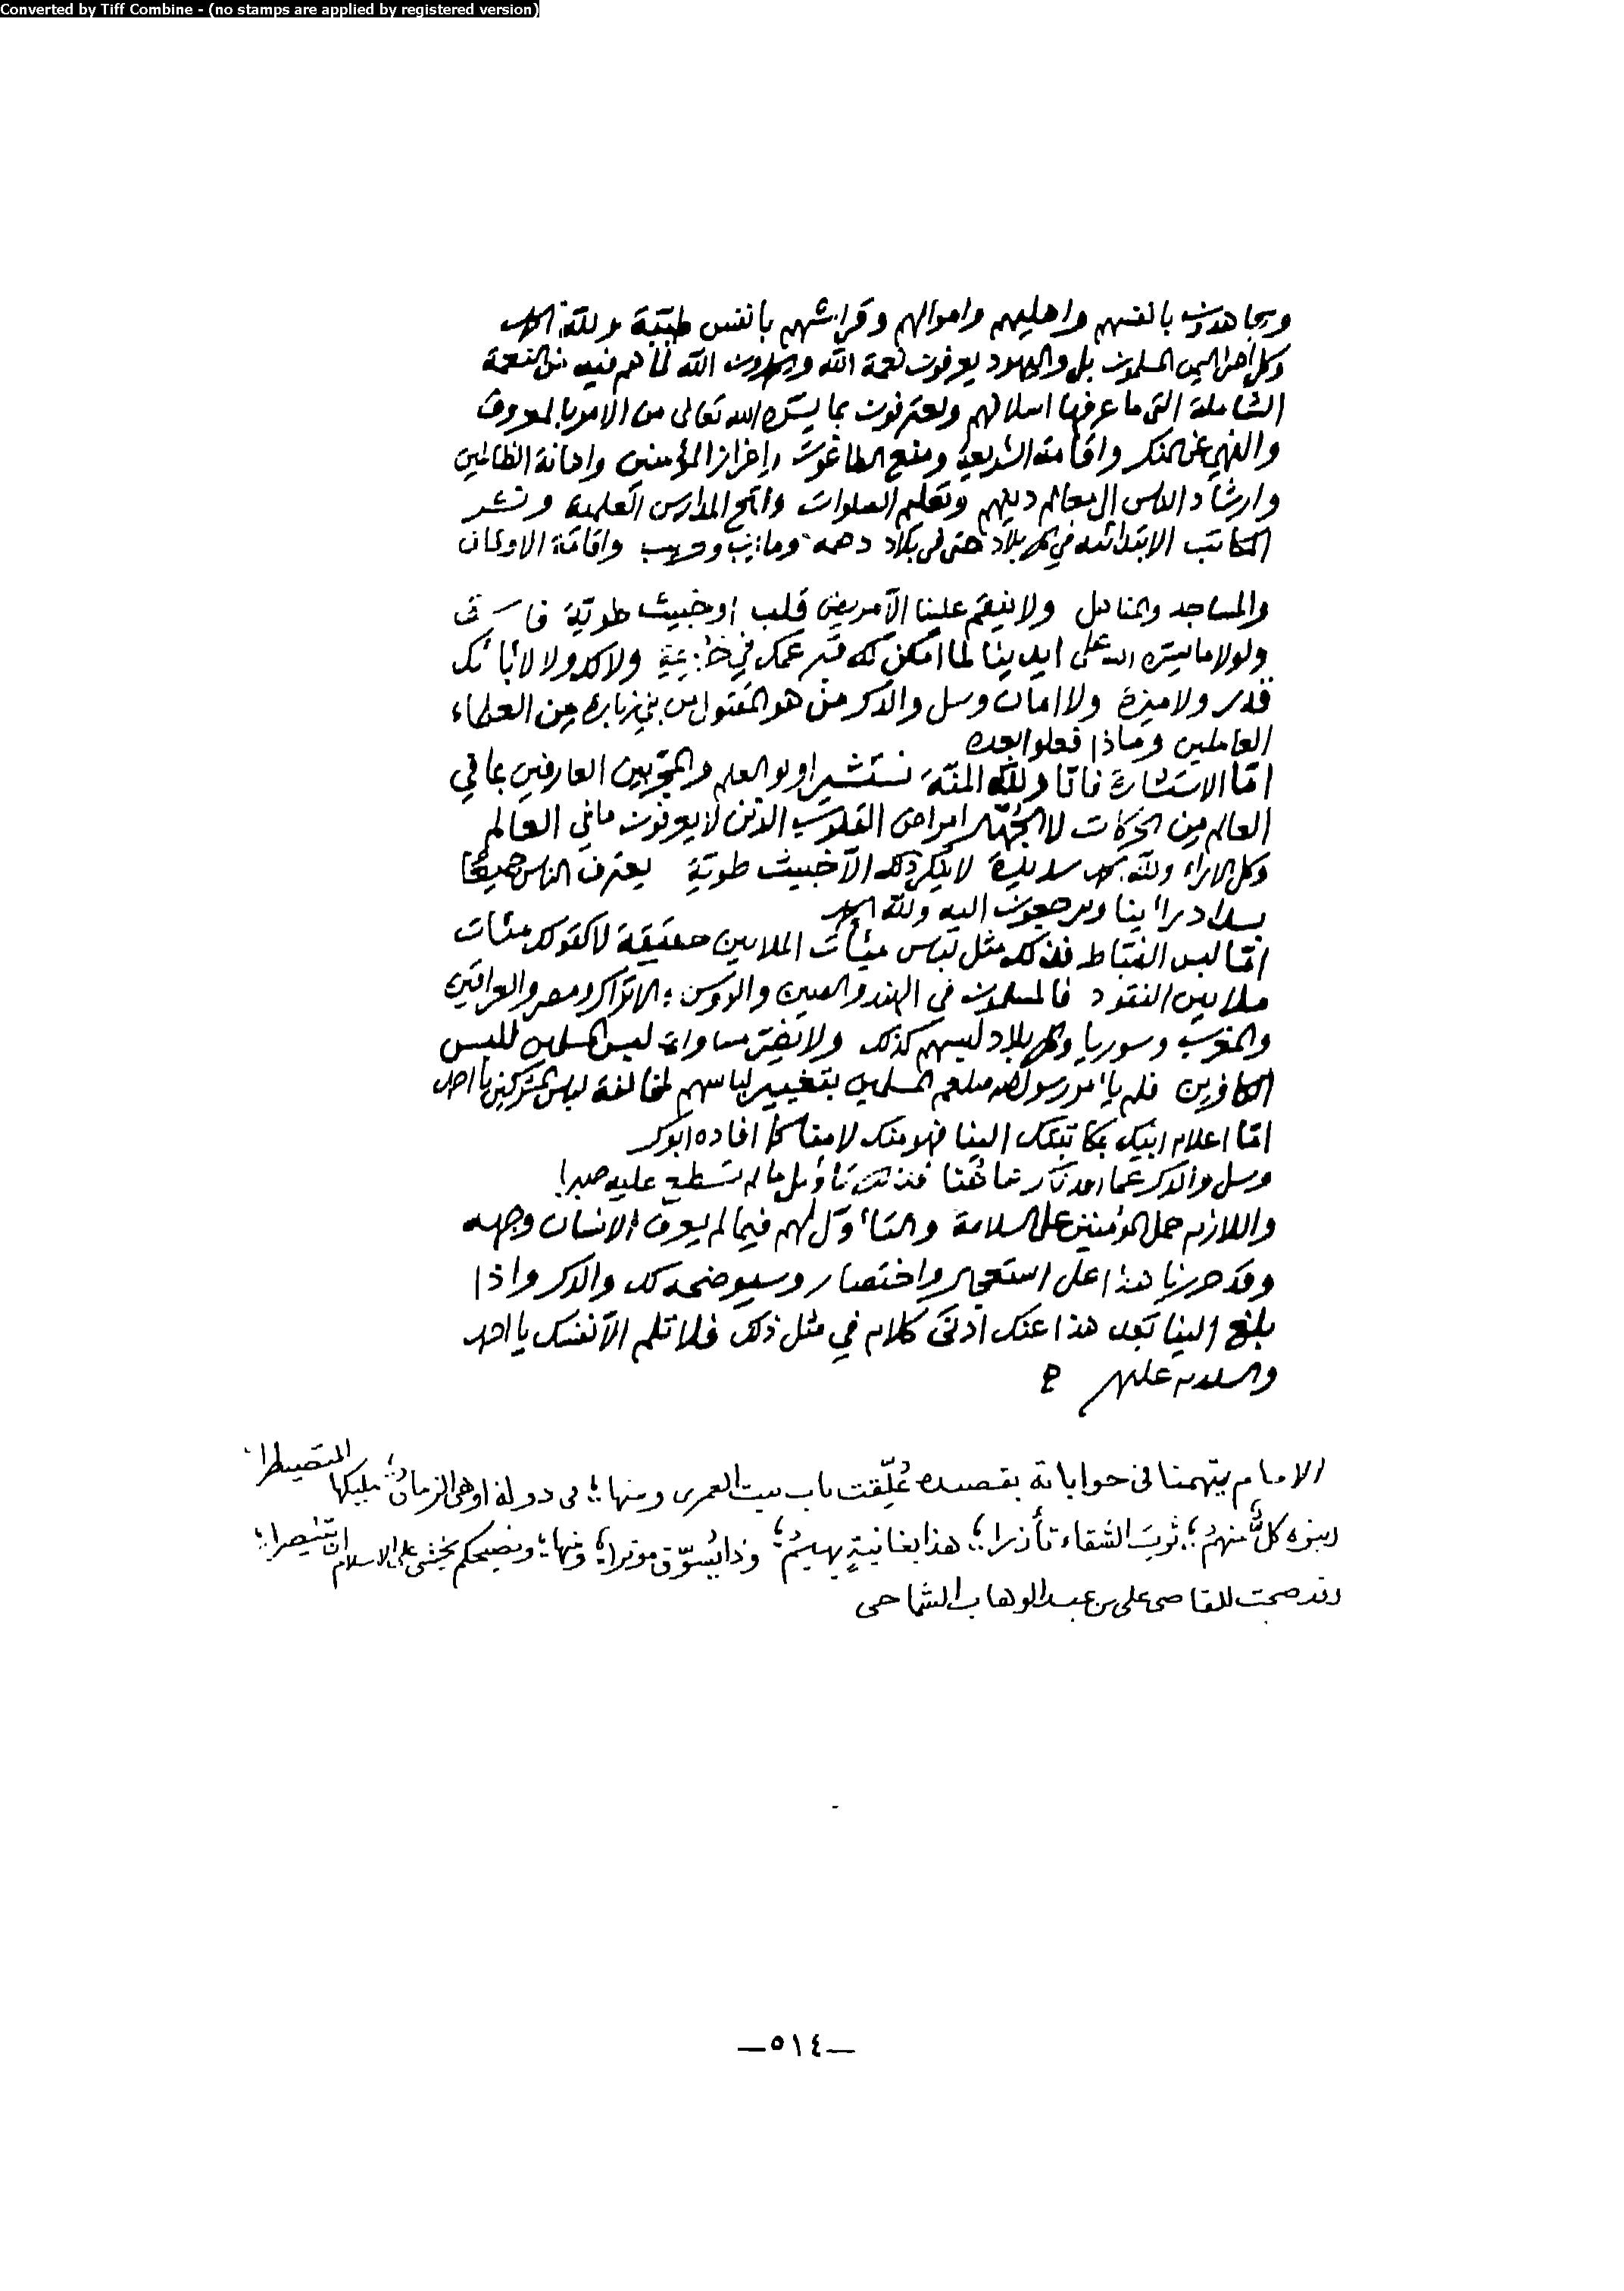 Converted by Tiff Combine - (no stamps are applied by registered version)
ويجاهدون بانفسهم واهليهم واموالهم وقرائبهم بانفس طيبة ولله الحمد
وكل اهل اليمن المسلمون بل واليهود يعرفون نعمة الله ويحمدون الله لما هم فيه من النعمة
الشاملة التي ما عرفها اسلافهم ويعترفون بما يسره الله تعالى من الامر بالمعروف
والنهي عن المنكر واقامة الشريعة ومنع الطاغوت واعزاز المؤمنين واهانة الظالمين
وارشاد الناس الى معالم دينهم وتعليم الصلوات وفتح المدارس العلمية ونشر
المكاتب الابتدائيه في كل بلاد حتى في بلاد دهمه ومأرب وحريب واقامة الاوقاف
والمساجد والمناهل ولا ينقم علينا الا مريض قلب او خبيث طوية فاسق
ولولا ما يسره الله على ايدينا لما امكن لك عمك في ولا لك ولا لابائك
قدر ولا ميزة ولا امان وسل والدكر من هو المقتول من بني زبارة من العلماء
العاملين وماذا فعلوا بعده
امّا الاستشارة فانا ولله المنّة نستشير اولو العلم والمجربين العارفين بما في
العالم من الحركات لا الجهّال امراض القلوب الذين لا يعرفون ما في العالم
وكل الاراء ولله الحمد سديدة لا ينكر ذلك الا خبيث طوية يعترف الناس جميعًا
بسداد رأينا ويرجعون اليه ولله الحمد
امّا لبس الضباط فذلك مثل لباس ميئات الملايين حقيقة لا كقولك مئات
ملايين النقود فالمسلمون في الهند والصين والروس والاتراك ومصر والعراقين
والمغرب وسوريا وكل بلاد لبسهم كذلك ولا يضر مساواة لبس المسلمين للبس
الكافرين فلم يأمر رسول الله صلعم المسلمين بتغيير لباسهم لمخالفة لباس المشركين يا احمد
امّا اعلام ابنيك بمكاتبتك الينا فهو منك لا منا كما افاده ابوكر
وسل والدكر عما فذلك تأويل ما لم تسطع عليه صبرا
واللازم حمل المؤمنين على السلامة والتأوّل لهم فيما لم يعرف الانسان وجهه
وقد حررنا هذا على استعجال واختصار وسيوضحه لك والدكر واذا
بلغ الينا بعد هذا عنك ادنى كلام في مثل ذلك فلا تلم الا نفسك يا احمد
والسلام عليكم
الامام يتهمنا في جواباته بقصيده عُلّقت بباب بيت العمري ومنها؛ في دولة اوهى الزمان مليكها المتصيطرا
وبنوه كلٌّ منهمُ؛ ثوبَ الشقاء تأزرا؛ هذا بغانيةٍ يهيمُ؛ وذا يُسوّق موترا؛ ومنها؛ ونصيحكم يخشى على الاسلام ان يتنصرا؛
وقد صحت للقاضي علي بن عبد الوهاب الشماحي
—٥١٤—